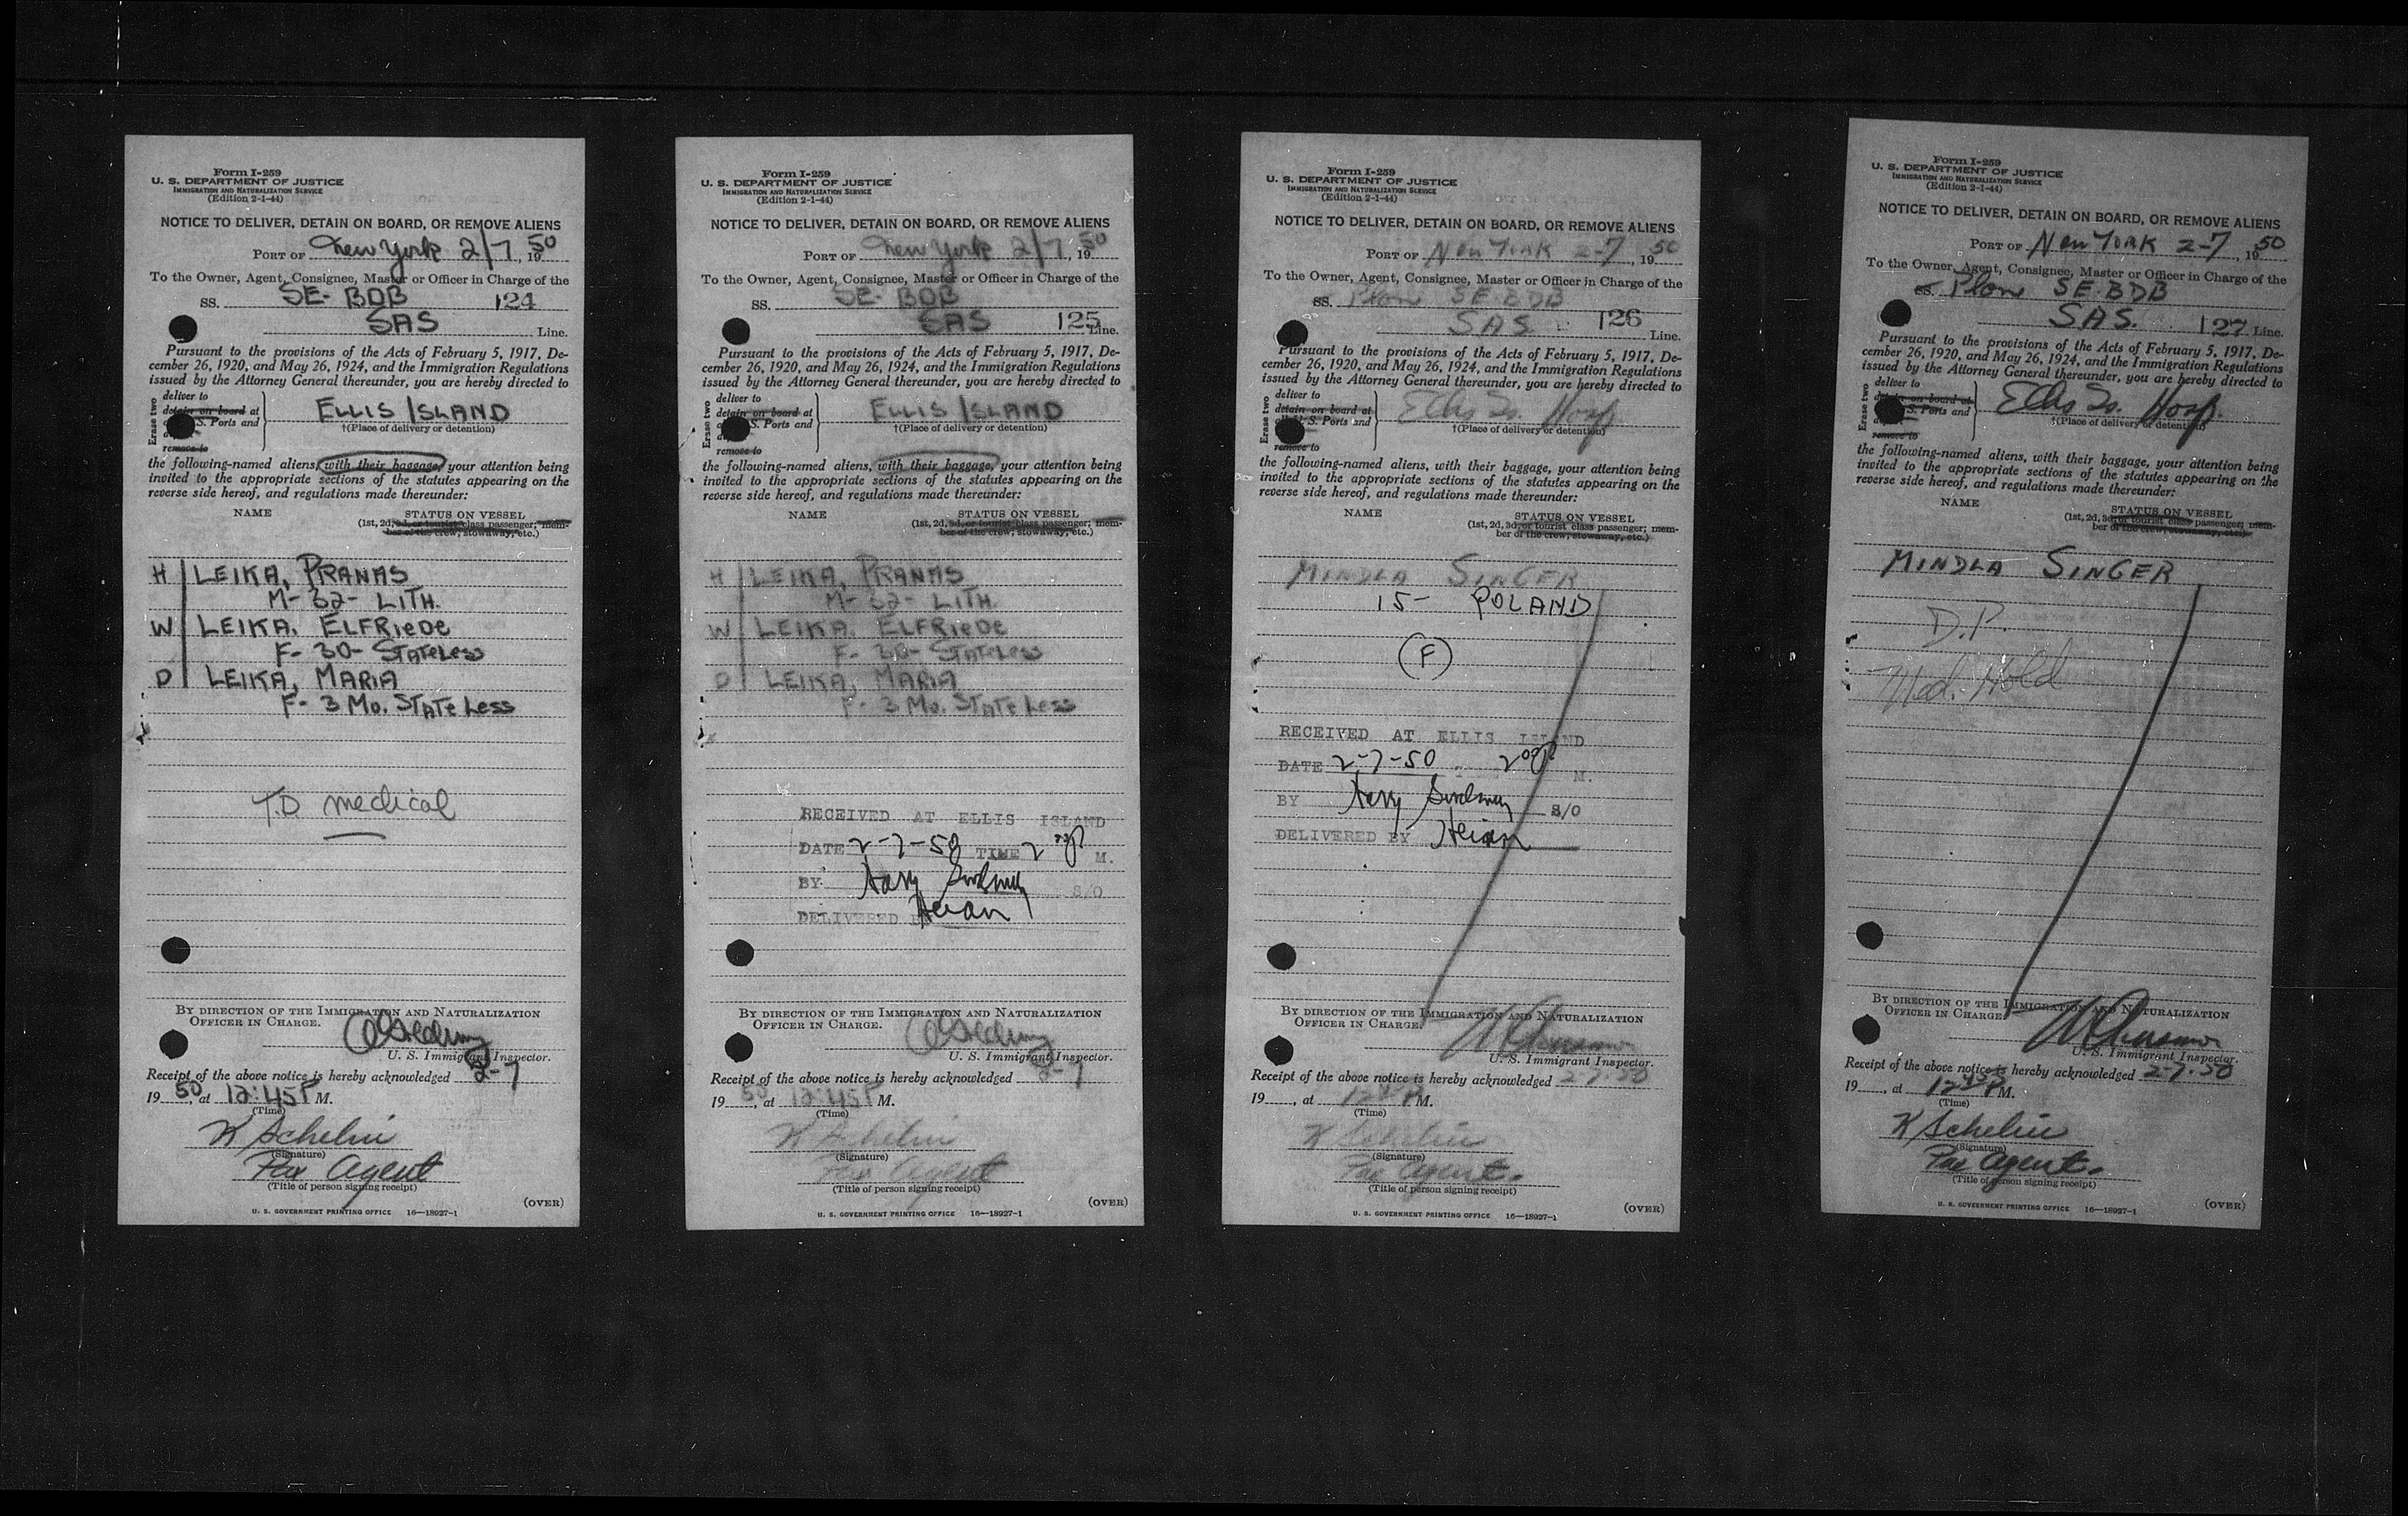 Form I-259
U. S. DEPARTMENT OF JUSTICE
IMMIGRATION AND NATURALIZATION SERVICE
(Edition 2-1-44)
NOTICE TO DELIVER, DETAIN ON BOARD, OR REMOVE ALIENS
PORT OF New York 2/7, 1950
To the Owner, Agent, Consignee, Master or Officer in Charge of the
SS. SE-BDB 124
SAS Line.
Pursuant to the provisions of the Acts of February 5, 1917, De-
cember 26, 1920, and May 26, 1924, and the Immigration Regulations
issued by the Attorney General thereunder, you are hereby directed to
Erase two
deliver to
detain on board at
S. Ports and
remove to
ELLIS ISLAND
†(Place of delivery or detention)
the following-named aliens, with their baggage, your attention being
invited to the appropriate sections of the statutes appearing on the
reverse side hereof, and regulations made thereunder:
NAME STATUS ON VESSEL
(1st, 2d, 3d, or tourist class passenger; mem-
ber of the crew, stowaway, etc.)
H LEIKA, PRANAS
M- 32- LITH.
W LEIKA, ELFRIEDE
F- 30- STATELESS
D LEIKA, MARIA
F- 3 Mo. STATELESS
T.D. medical
BY DIRECTION OF THE IMMIGRATION AND NATURALIZATION
OFFICER IN CHARGE.
U. S. Immigrant Inspector.
Receipt of the above notice is hereby acknowledged 2-7
1950, at 12:45P M.
(Time)
K Schelin
(Signature)
Pax Agent
(Title of person signing receipt)
(OVER)
U. S. GOVERNMENT PRINTING OFFICE 16—18927-1
Form I-259
U. S. DEPARTMENT OF JUSTICE
IMMIGRATION AND NATURALIZATION SERVICE
(Edition 2-1-44)
NOTICE TO DELIVER, DETAIN ON BOARD, OR REMOVE ALIENS
PORT OF New York 2/7, 1950
To the Owner, Agent, Consignee, Master or Officer in Charge of the
SS. SE-BDB
SAS 125 Line.
Pursuant to the provisions of the Acts of February 5, 1917, De-
cember 26, 1920, and May 26, 1924, and the Immigration Regulations
issued by the Attorney General thereunder, you are hereby directed to
Erase two
deliver to
detain on board at
S. Ports and
remove to
ELLIS ISLAND
†(Place of delivery or detention)
the following-named aliens, with their baggage, your attention being
invited to the appropriate sections of the statutes appearing on the
reverse side hereof, and regulations made thereunder:
NAME STATUS ON VESSEL
(1st, 2d, 3d, or tourist class passenger; mem-
ber of the crew, stowaway, etc.)
H LEIKA, PRANAS
M- 32- LITH.
W LEIKA, ELFRIEDE
F- 30- STATELESS
D LEIKA, MARIA
F- 3 Mo. STATELESS
RECEIVED AT ELLIS ISLAND
DATE 2-7-50 TIME 2 P M.
BY S/O
DELIVERED BY
BY DIRECTION OF THE IMMIGRATION AND NATURALIZATION
OFFICER IN CHARGE.
U. S. Immigrant Inspector.
Receipt of the above notice is hereby acknowledged 2-7
1950, at 12:45P M.
(Time)
K Schelin
(Signature)
Pax Agent
(Title of person signing receipt)
(OVER)
U. S. GOVERNMENT PRINTING OFFICE 16—18927-1
Form I-259
U. S. DEPARTMENT OF JUSTICE
IMMIGRATION AND NATURALIZATION SERVICE
(Edition 2-1-44)
NOTICE TO DELIVER, DETAIN ON BOARD, OR REMOVE ALIENS
PORT OF New York 2-7, 1950
To the Owner, Agent, Consignee, Master or Officer in Charge of the
SS. Plane SE-BDB
SAS. 126 Line.
Pursuant to the provisions of the Acts of February 5, 1917, De-
cember 26, 1920, and May 26, 1924, and the Immigration Regulations
issued by the Attorney General thereunder, you are hereby directed to
Erase two
deliver to
detain on board at
S. Ports and
remove to
Ellis Is. Hosp
†(Place of delivery or detention)
the following-named aliens, with their baggage, your attention being
invited to the appropriate sections of the statutes appearing on the
reverse side hereof, and regulations made thereunder:
NAME STATUS ON VESSEL
(1st, 2d, 3d, or tourist class passenger; mem-
ber of the crew, stowaway, etc.)
MINDLA SINGER
15- POLAND
F
RECEIVED AT ELLIS ISLAND
DATE 2-7-50 2 P M.
BY S/O
DELIVERED BY
BY DIRECTION OF THE IMMIGRATION AND NATURALIZATION
OFFICER IN CHARGE.
U. S. Immigrant Inspector.
Receipt of the above notice is hereby acknowledged 2-7-50
19, at 12 45 P M.
(Time)
K Schelin
(Signature)
Pax Agent.
(Title of person signing receipt)
(OVER)
U. S. GOVERNMENT PRINTING OFFICE 16—18927-1
Form I-259
U. S. DEPARTMENT OF JUSTICE
IMMIGRATION AND NATURALIZATION SERVICE
(Edition 2-1-44)
NOTICE TO DELIVER, DETAIN ON BOARD, OR REMOVE ALIENS
PORT OF New York 2-7, 1950
To the Owner, Agent, Consignee, Master or Officer in Charge of the
SS. Plane SE-BDB
SAS. 127 Line.
Pursuant to the provisions of the Acts of February 5, 1917, De-
cember 26, 1920, and May 26, 1924, and the Immigration Regulations
issued by the Attorney General thereunder, you are hereby directed to
Erase two
deliver to
detain on board at
S. Ports and
remove to
Ellis Is. Hosp.
†(Place of delivery or detention)
the following-named aliens, with their baggage, your attention being
invited to the appropriate sections of the statutes appearing on the
reverse side hereof, and regulations made thereunder:
NAME STATUS ON VESSEL
(1st, 2d, 3d, or tourist class passenger; mem-
ber of the crew, stowaway, etc.)
MINDLA SINGER
D.P.
Med. Hold
BY DIRECTION OF THE IMMIGRATION AND NATURALIZATION
OFFICER IN CHARGE.
U. S. Immigrant Inspector.
Receipt of the above notice is hereby acknowledged 2-7-50
19, at 12 45 P M.
(Time)
K Schelin
(Signature)
Pax Agent.
(Title of person signing receipt)
(OVER)
U. S. GOVERNMENT PRINTING OFFICE 16—18927-1